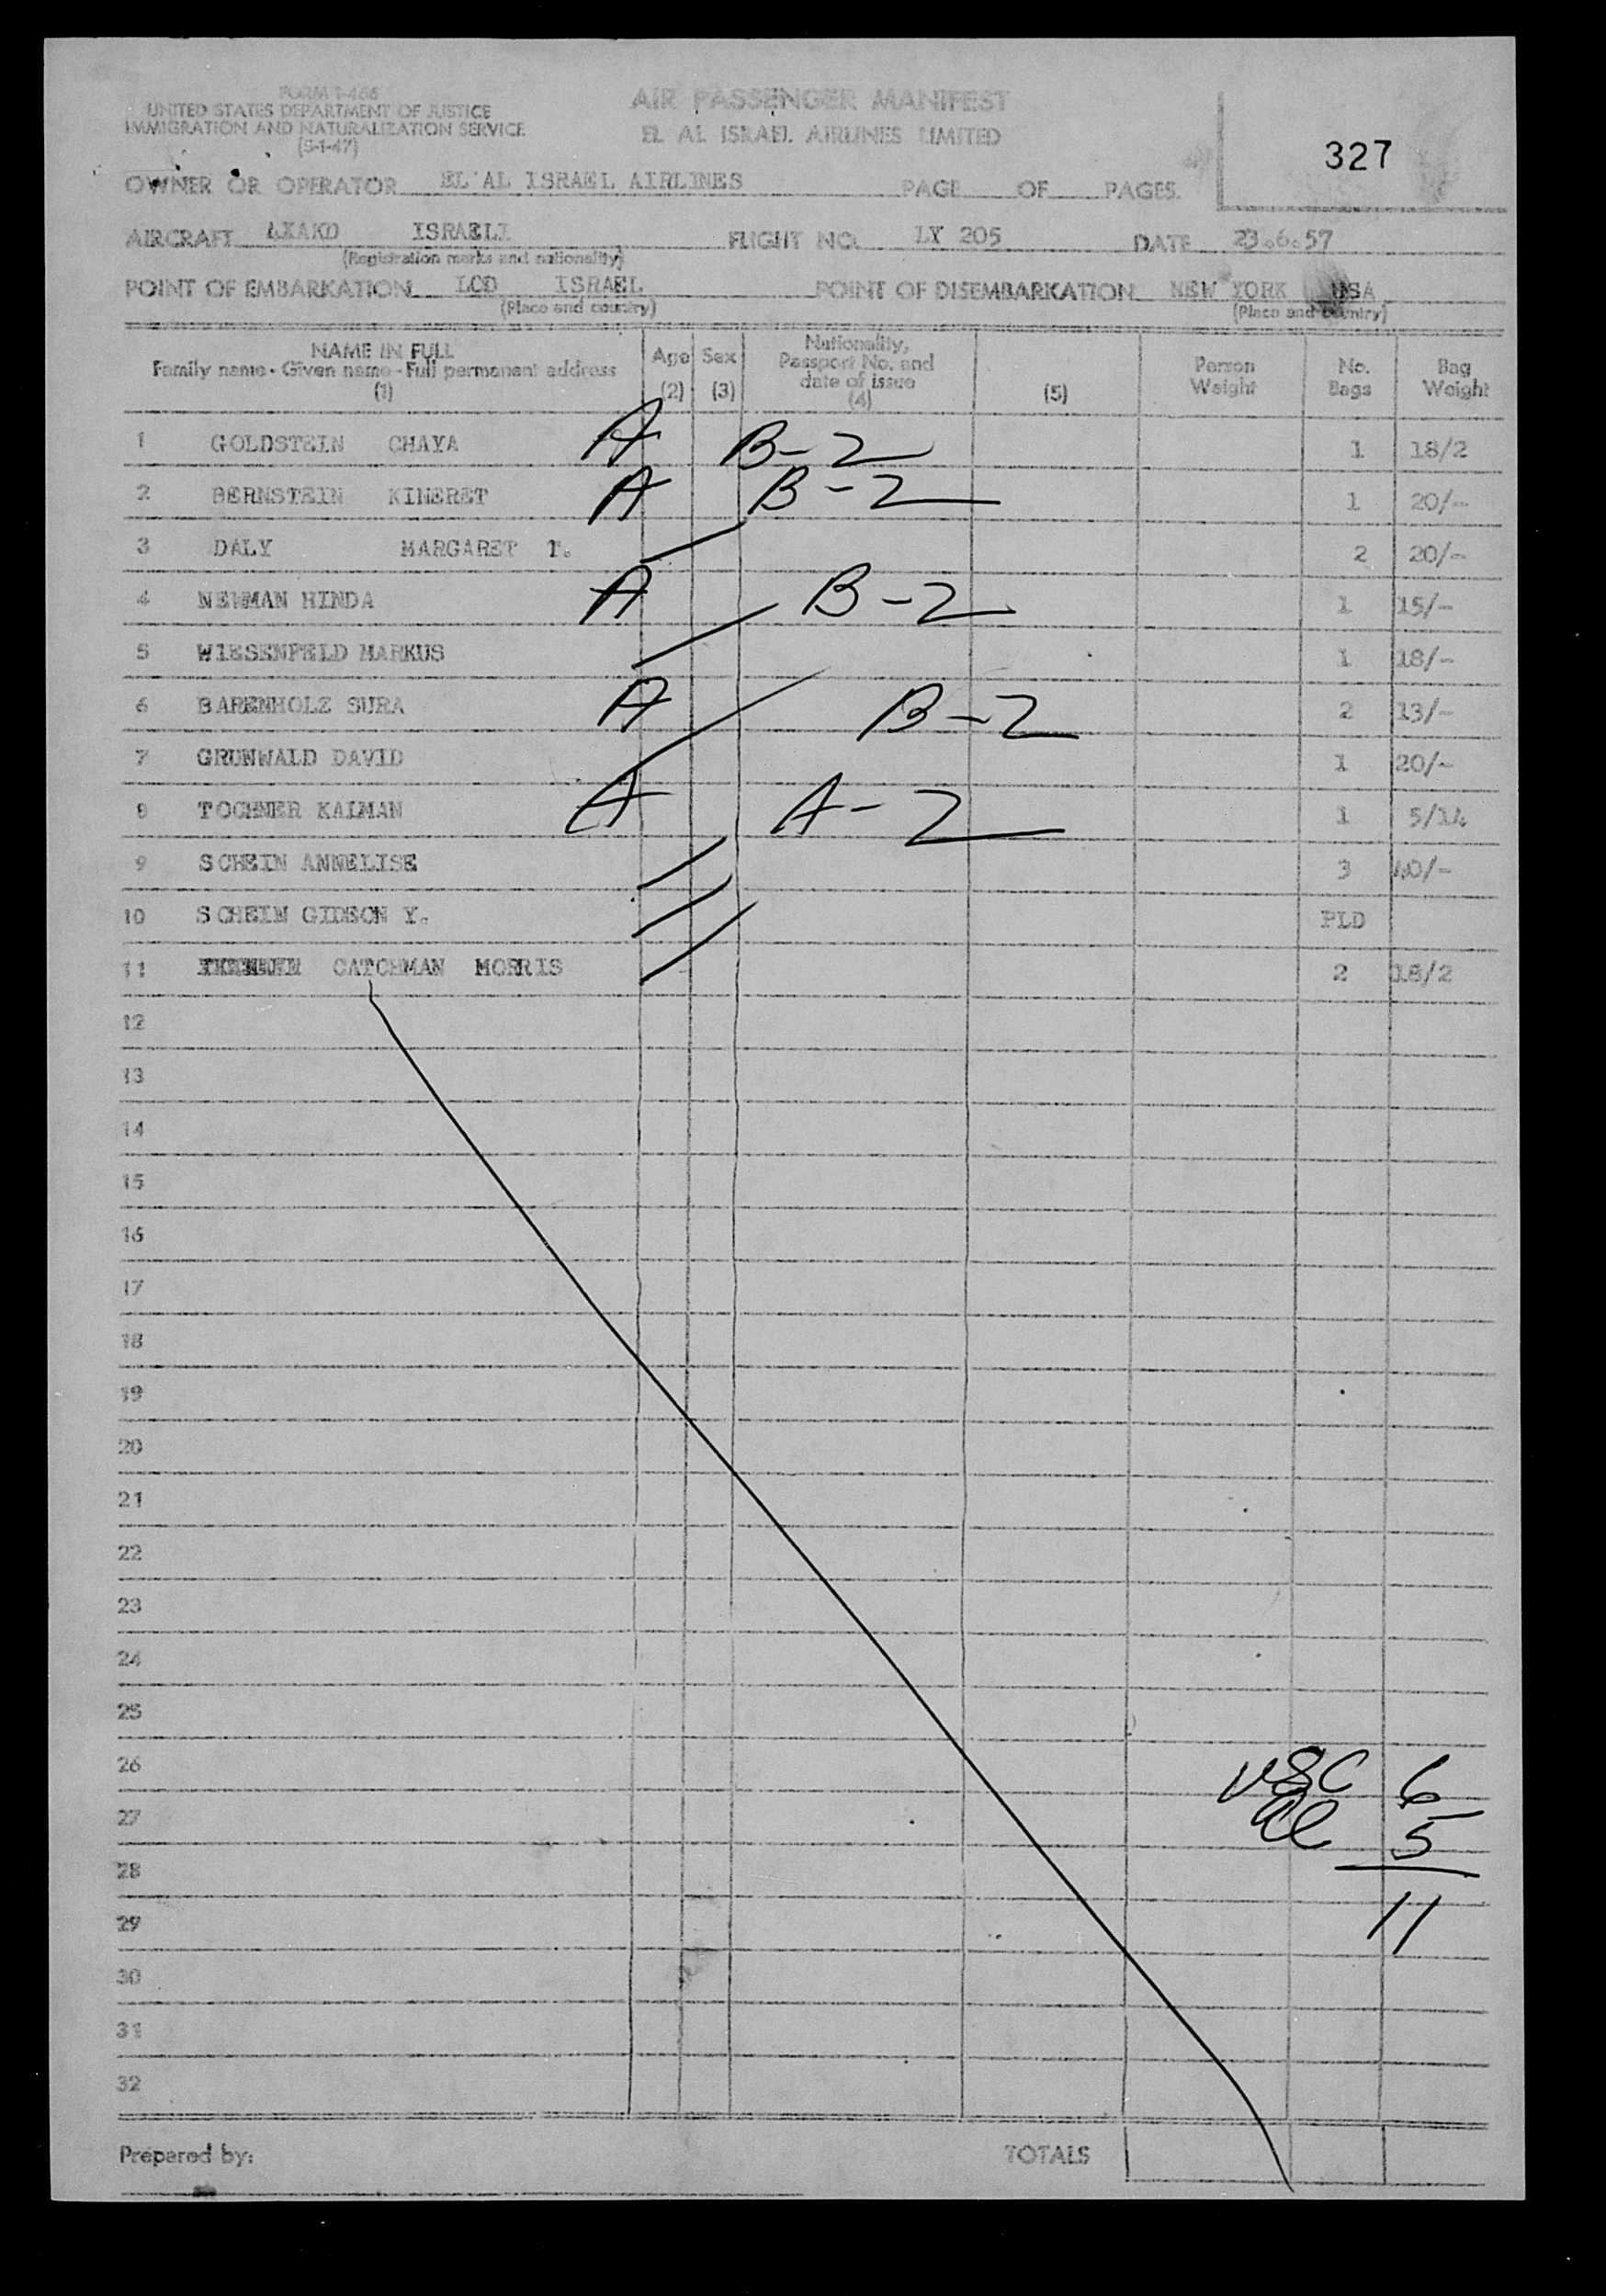 FORM I-466
UNITED STATES DEPARTMENT OF JUSTICE
IMMIGRATION AND NATURALIZATION SERVICE
(5-1-47)
AIR PASSENGER MANIFEST
EL AL ISRAEL AIRLINES LIMITED
327
OWNER OR OPERATOR EL'AL ISRAEL AIRLINES PAGE OF PAGES.
AIRCRAFT 4XAKD ISRAELI FLIGHT NO. LY 205 DATE 23.6.57
(Registration marks and nationality)
POINT OF EMBARKATION LOD ISRAEL POINT OF DISEMBARKATION NEW YORK USA
(Place and country) (Place and country)
NAME IN FULL
Family name - Given name - Full permanent address
(1)
Age (2) Sex (3) Nationality, Passport No. and date of issue (4) (5) Person Weight No. Bags Bag Weight
1 GOLDSTEIN CHAYA A B-2 1 18/2
2 BERNSTEIN KINERET A B-2 1 20/-
3 DALY MARGARET T. 2 20/-
4 NEWMAN HINDA A B-2 1 15/-
5 WIESENFELD MARKUS 1 18/-
6 BARENHOLZ SURA A B-2 2 13/-
7 GRUNWALD DAVID 1 20/-
8 TOCHNER KALMAN A A-2 1 5/14
9 SCHEIN ANNELISE 3 40/-
10 SCHEIN GIDEON Y. PLD
11 CATCHMAN MORRIS 2 18/2
12
13
14
15
16
17
18
19
20
21
22
23
24
25
26 USC 6
27 Al 5
28
29 11
30
31
32
Prepared by: TOTALS